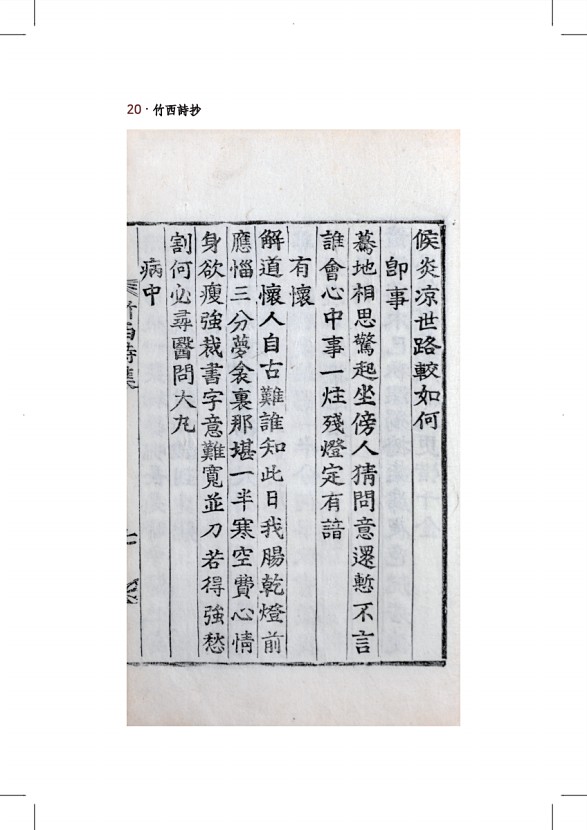 20 · 竹西詩抄
候炎凉世路較如何
卽事
驀地相思驚起坐傍人猜問意還慙不言
誰會心中事一炷殘燈定有諳
有懷
解道懷人自古難誰知此日我腸乾燈前
應惱三分夢衾裏那堪一半寒空費心情
身欲瘦強裁書字意難寬並刀若得強愁
割何必尋醫問大丸
病中
竹西詩集